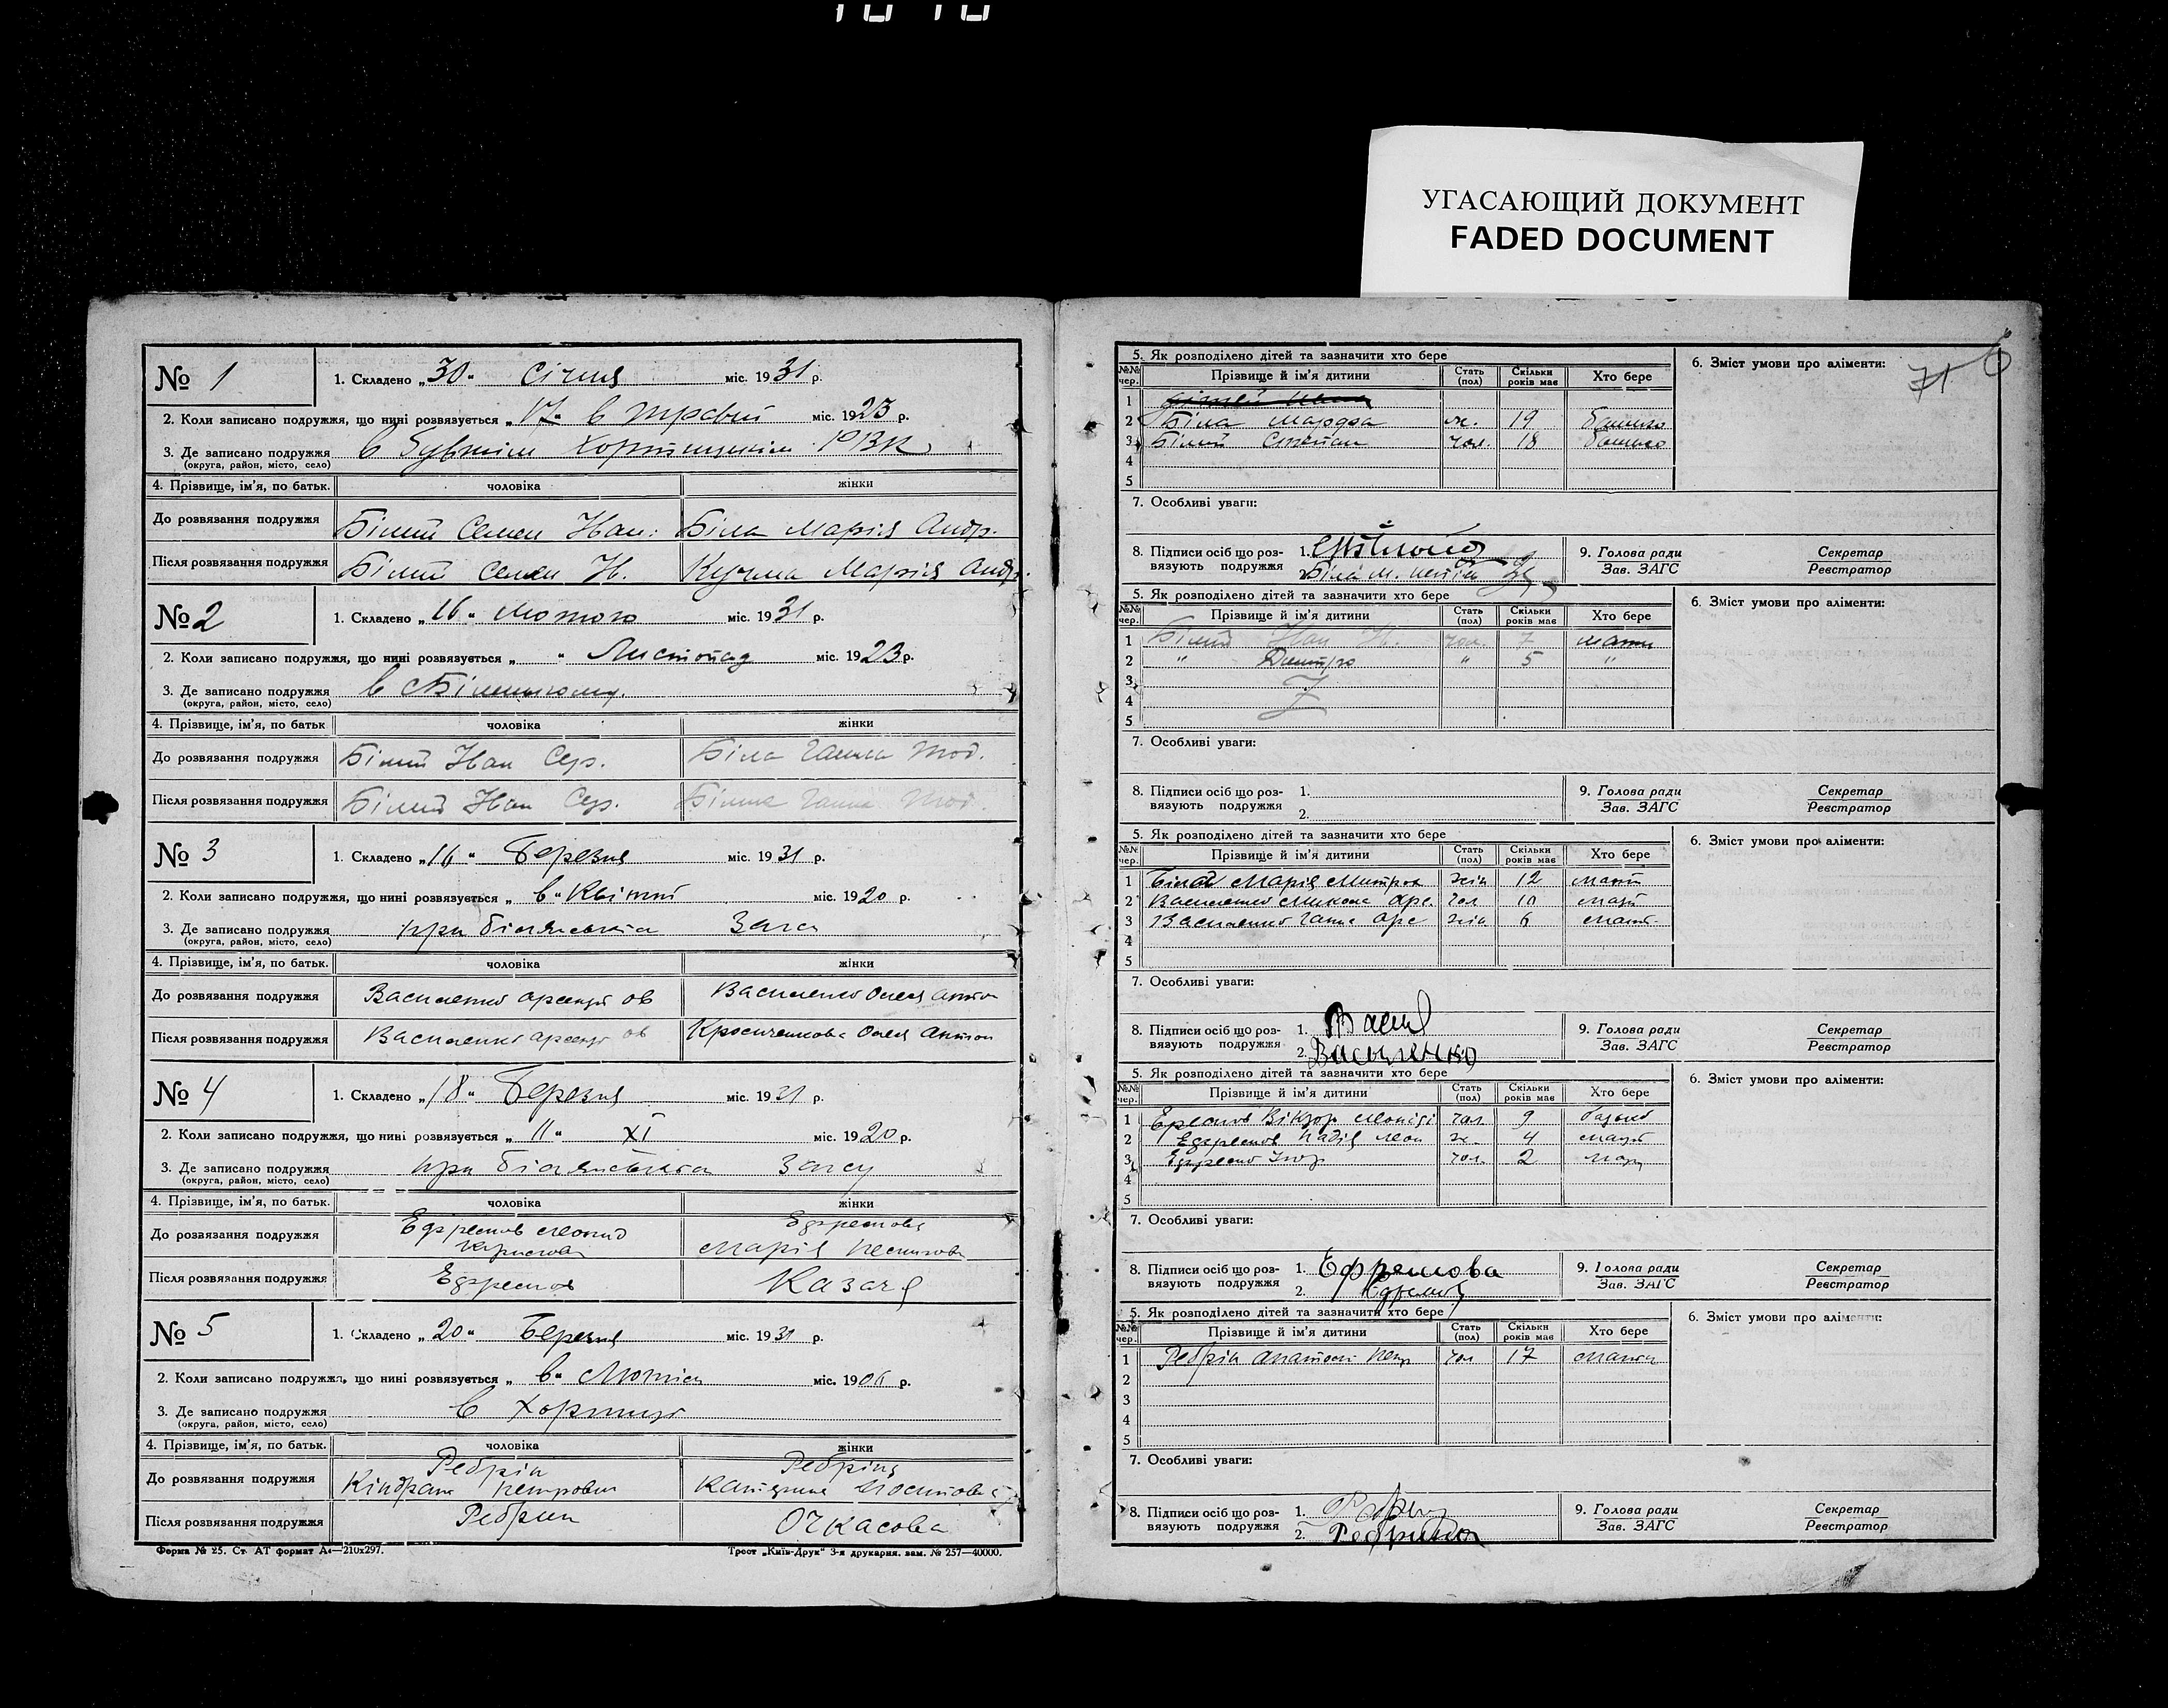 УГАСАЮЩИЙ ДОКУМЕНТ
FADED DOCUMENT
№ 1
1. Складено „30“ Січня міс. 1931 р.
2. Коли записано подружжя, що нині розвязується „17“ в травні міс. 1923 р.
3. Де записано подружжя в бувшім Хортицькім РВК
(округа, район, місто, село)
4. Прізвище, ім'я, по батьк. чоловіка жінки
До розвязання подружжя Білий Семен Іван. Біла Марія Андр.
Після розвязання подружжя Білий Семен І. Кучма Марія Андр.
№ 2
1. Складено „16“ Лютого міс. 1931 р.
2. Коли записано подружжя, що нині розвязується „ “ Листопад міс. 1923 р.
3. Де записано подружжя в
(округа, район, місто, село)
4. Прізвище, ім'я, по батьк чоловіка жінки
До розвязання подружжя Білий Іван Сер. Біла Ганна Тод.
Після розвязання подружжя Білий Іван Сер. Ганна Тод.
№ 3
1. Складено „16“ Березня міс. 1931 р.
2. Коли записано подружжя, що нині розвязується „ в “ Квітні міс. 1920 р.
3. Де записано подружжя при Загс
(округа, район, місто, село)
4. Прізвище, ім'я, по батьк. чоловіка жінки
До розвязання подружжя Василенко Василенко Олея Антон
Після розвязання подружжя Василенко Олея Антон
№ 4
1. Складено „18“ Березня міс. 1931 р.
2. Коли записано подружжя, що нині розвязується „11“ XI міс. 1920 р.
3. Де записано подружжя при Загсу
(округа, район, місто, село)
4. Прізвище, ім'я, по батьк. чоловіка жінки
Ефремов Леонид Ефремова
До розвязання подружжя Марія
Після розвязання подружжя Ефремов Казача
№ 5
1. Складено „20“ Березня міс. 1931 р.
2. Коли записано подружжя, що нині розвязується „ в “ Лютім міс. 1906 р.
3. Де записано подружжя в Хортиці
(округа, район, місто, село)
4. Прізвище, ім'я, по батьк. чоловіка жінки
Ребрін Ребріна
До розвязання подружжя Кіндрат Петрович
Після розвязання подружжя Ребрин Очкасова
Форма № 25. Ст. АТ формат А4—210х297. Трест „Київ-Друк“ 3-я друкарня. зам. № 257—40000.
71 6
5. Як розподілено дітей та зазначити хто бере 6. Зміст умови про аліменти:
№№ чер. Прізвище й ім'я дитини Стать (пол) Скільки років має Хто бере
1
2 Біла Марфа ж. 19 батько
3 Білий Степан чол. 18 батько
4
5
7. Особливі уваги:
8. Підписи осіб що роз- 1. 9. Голова ради Секретар
вязують подружжя 2. Біла М. Зав. ЗАГС Реєстратор
5. Як розподілено дітей та зазначити хто бере 6. Зміст умови про аліменти:
№№ чер. Прізвище й ім'я дитини Стать (пол) Скільки років має Хто бере
1 Білий Іван Ів. чол. 7 мати
2 " Дмитро " 5 "
3
4
5
7. Особливі уваги:
8. Підписи осіб що роз- 1. 9. Голова ради Секретар
вязують подружжя 2. Зав. ЗАГС Реєстратор
5. Як розподілено дітей та зазначити хто бере 6. Зміст умови про аліменти:
№№ чер. Прізвище й ім'я дитини Стать (пол) Скільки років має Хто бере
1 Марія Митров жін 12 мати
2 Василенко Микола Арс. чол 10 мати
3 Василенко Ганна Арс жін 6 мати
4
5
7. Особливі уваги:
8. Підписи осіб що роз- 1. Васил 9. Голова ради Секретар
вязують подружжя 2. Василенко Зав. ЗАГС Реєстратор
5. Як розподілено дітей та зазначити хто бере 6. Зміст умови про аліменти:
№№ чер. Прізвище й ім'я дитини Стать (пол) Скільки років має Хто бере
1 Віктор чол 9 батько
2 Ефремов Надія Леон ж. 4 мати
3 Ігор чол. 2 мати
4
5
7. Особливі уваги:
8. Підписи осіб що роз- 1. Ефремова 9. Голова ради Секретар
вязують подружжя 2. Зав. ЗАГС Реєстратор
5. Як розподілено дітей та зазначити хто бере 6. Зміст умови про аліменти:
№№ чер. Прізвище й ім'я дитини Стать (пол) Скільки років має Хто бере
1 Ребрін Анатолі чол 17 мати
2
3
4
5
7. Особливі уваги:
8. Підписи осіб що роз- 1. 9. Голова ради Секретар
вязують подружжя 2. Ребрина Зав. ЗАГС Реєстратор